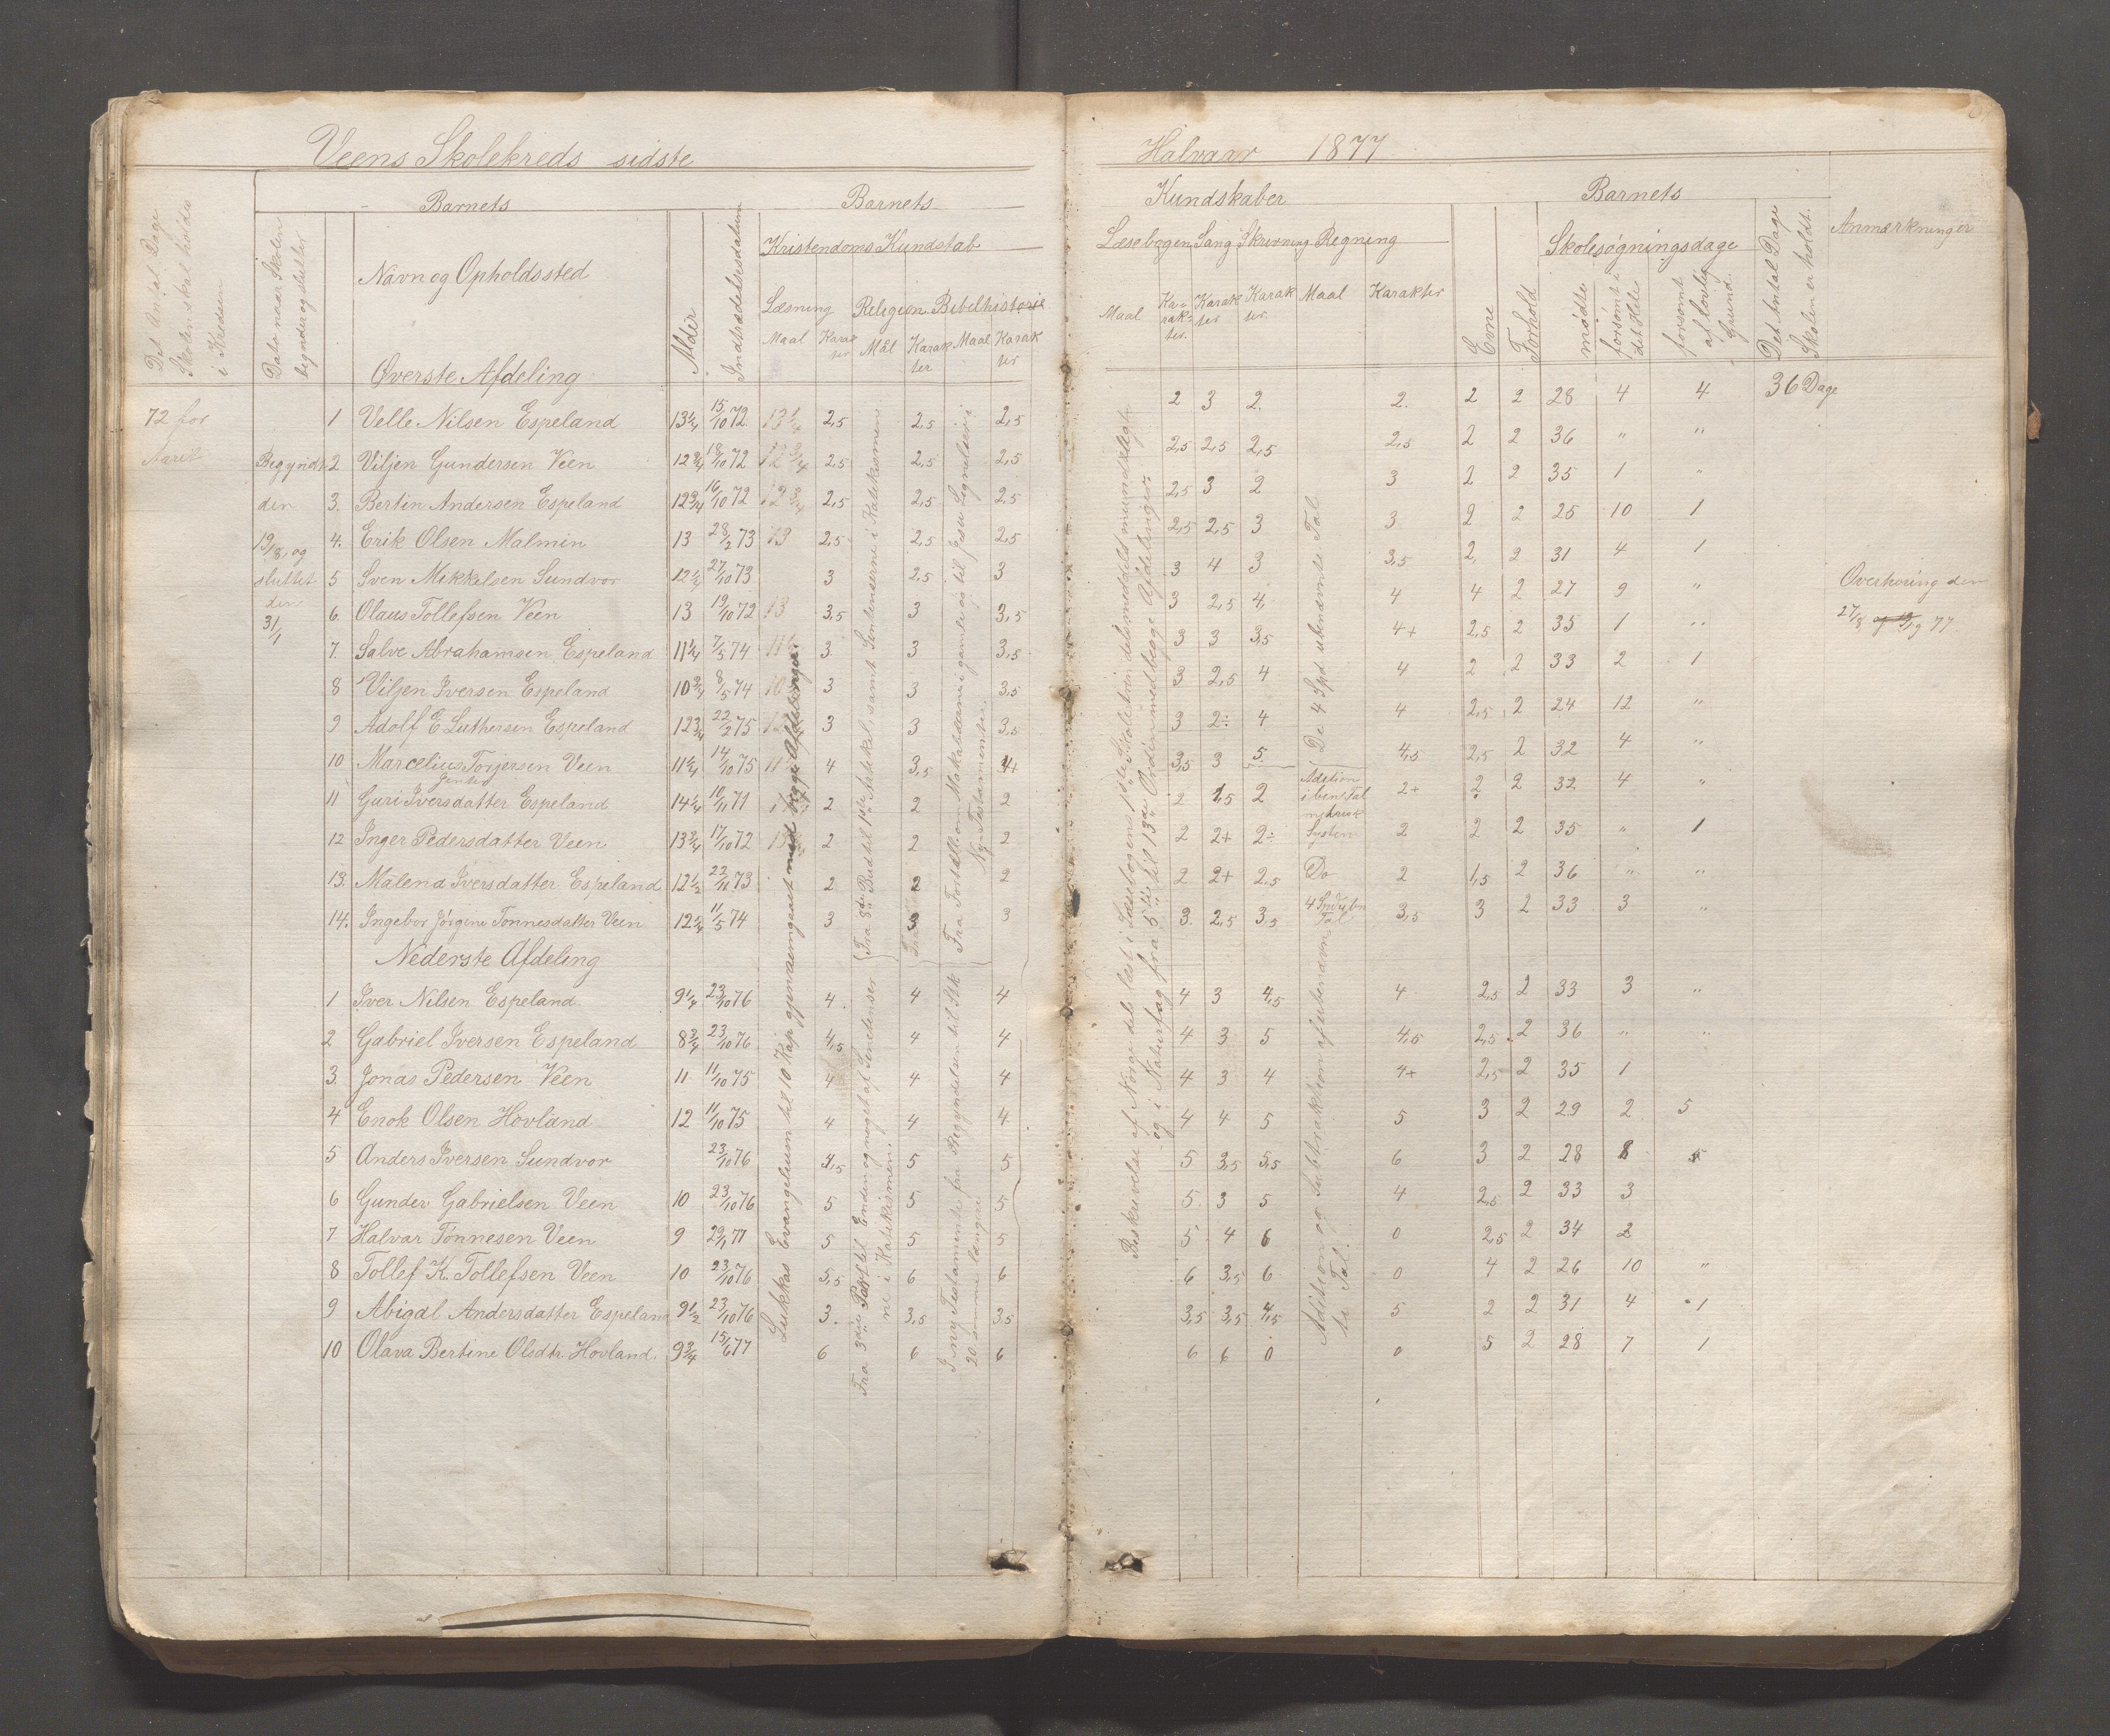 Veens Skolekreds sidste Halvaar 1877
Det Antal Dage Skolen skal holdes i Kredsen
Dato naar Skolen begynder og slutter
Barnets
Navn og Opholdssted
Alder
Indtrædelsesdatum
Barnets
Kristendoms Kundskab
Læsning Religion Bibelhistorie
Maal Karakter Mål Karakter Maal Karakter
Kundskaber
Læsebogen Sang Skrivning Regning
Maal Karakter. Karakter Karakter. Maal Karakter
Evne
Forhold
Barnets
Skolesøgningsdage
mødte
forsømt i det Hele
forsømt af lovlig Grund.
Det Antal Dage Skolen er holdt.
Anmærkninger
Øverste Afdeling
72 for Aaret
Begyndt den 19/8, og sluttet den 31/1
1 Velle Nilsen Espeland 13 1/4 15/10 72 13 1/4 2,5 2,5 2,5 2 3 2. 2. 2 2 28 4 4 36 Dage
2 Viljen Gundersen Veen 12 3/4 18/10 72 12 3/4 2,5 2,5 2,5 2,5 2,5 2,5 2,5 2 2 36 " "
3. Bertin Andersen Espeland 12 3/4 16/10 72 12 3/4 2,5 2,5 2,5 2,5 3 2 3 2 2 35 1 "
4. Erik Olsen Malmin 13 28/2 73 13 2,5 2,5 2,5 2,5 2,5 3 3 2 2 25 10 1
5 Sven Mikkelsen Sundvor 12 1/2 27/10 73 3 2,5 3 3 4 3 3,5 2, 2 31 4 1
6. Olaus Tollefsen Veen 13 19/10 72 13 3,5 3 3,5 3 2,5 4, 4 4 2 27 9 "
7. Salve Abrahamsen Espeland 11 1/4 7/5 74 3 3 3,5 3 3 3,5 4+ 2,5 2 35 1 "
8 Viljen Iversen Espeland 10 3/4 8/5 74 3 3 3,5 3 2,5 4 4 2 2 33 2 1
9 Adolf E Luthersen Espeland 12 3/4 22/2 75 3 3 3,5 3 2÷ 4 4 2,5 2 24 12 "
10 Marcelius Torjersen Veen 11 1/4 14/10 75 4 3,5 4+ 3,5 3 5. 4,5 2,5 2 32 4 "
11 Guri Iversdatter Espeland 14 1/4 10/11 71 2 2 2 2 1,5 2 2+ 2 2 32 4 "
12 Inger Pedersdatter Veen 13 3/4 17/10 72 2 2 2 2 2+ 2÷ 2 2 2 35 " 1
13. Malena Iversdatter Espeland 12 1/2 22/11 73 2 2 2 2 2+ 2,5 Do 2 1,5 2 36 " "
14. Ingebor Jørgine Tønnesdatter Veen 12 3/4 11/5 74 3 3 3 3. 2,5 3,5 3,5 3 2 33 3 "
Nederste Afdeling
1 Iver Nilsen Espeland. 9 1/4 23/10 76 4. 4 4 4 3 4,5 4 2,5 2 33 3 "
2 Gabriel Iversen Espeland 8 3/4 23/10 76 4,5 4 4 4 3 5 4,5 2,5 2 36 " "
3. Jonas Pedersen Veen 11 11/10 75 4 4 4 4 3 4 4+ 2,5 2 35 1
4 Enok Olsen Hovland 12 11/10 75 4 4 4 4 4 5 5 3 2 29 2 5
5 Anders Iversen Sundvor 23/10 76 4,5 5 5 5 3,5 5,5 6 3 2 28 8 5
6 Gunder Gabrielsen Veen 10 23/10 76 5 5 5 5 3 5 4 2,5 2 33 3
7 Halvar Tønnesen Veen 9 29/1 77 5 5 5 5 4 6 0 2,5 2 34 2
8 Tollef K. Tollefsen Veen 10 23/10 76 5,5 6 6 6 3,5 6 0 4 2 26 10 "
9 Abigal Andersdatter Espeland 9 1/2 23/10 76 3. 3,5 3,5 3,5 3,5 4,5 5 2 2 31 4 1
10 Olava Bertine Olsdtr. Hovland. 9 3/4 15/6 77 6 6 6 6 6 0 0 5 2 28 7 1
Lukkas Evangelium til 10 Kap gjennemgaaet med begge Afdelinger.
Fra 3die Bud til 1ste Artikkel, samt Sentenserne i Katekismen
Fra Fortæll. om Makabæerne i gamle og til Jesu Lignelser i Ny Testamentet.
Fra 3die Part til Enden og noget af Sentenserne i Katekismen.
I ny Testamente fra Begyndelsen til Stk 20 somme længre
Beskrivelse af Norge dels læst i Læsebogens 1ste Skoletrin dels meddelt mundtligt og i Naturfag fra 5te til 13de Orden med begge Afdelinger.
De 4 Spd ubenævnte Tal
Adition i ben. Tal System
4 Spd ubn Tal
Adition og Subtraktion af ubenævnte Tal.
Overhøring den 27/8 77